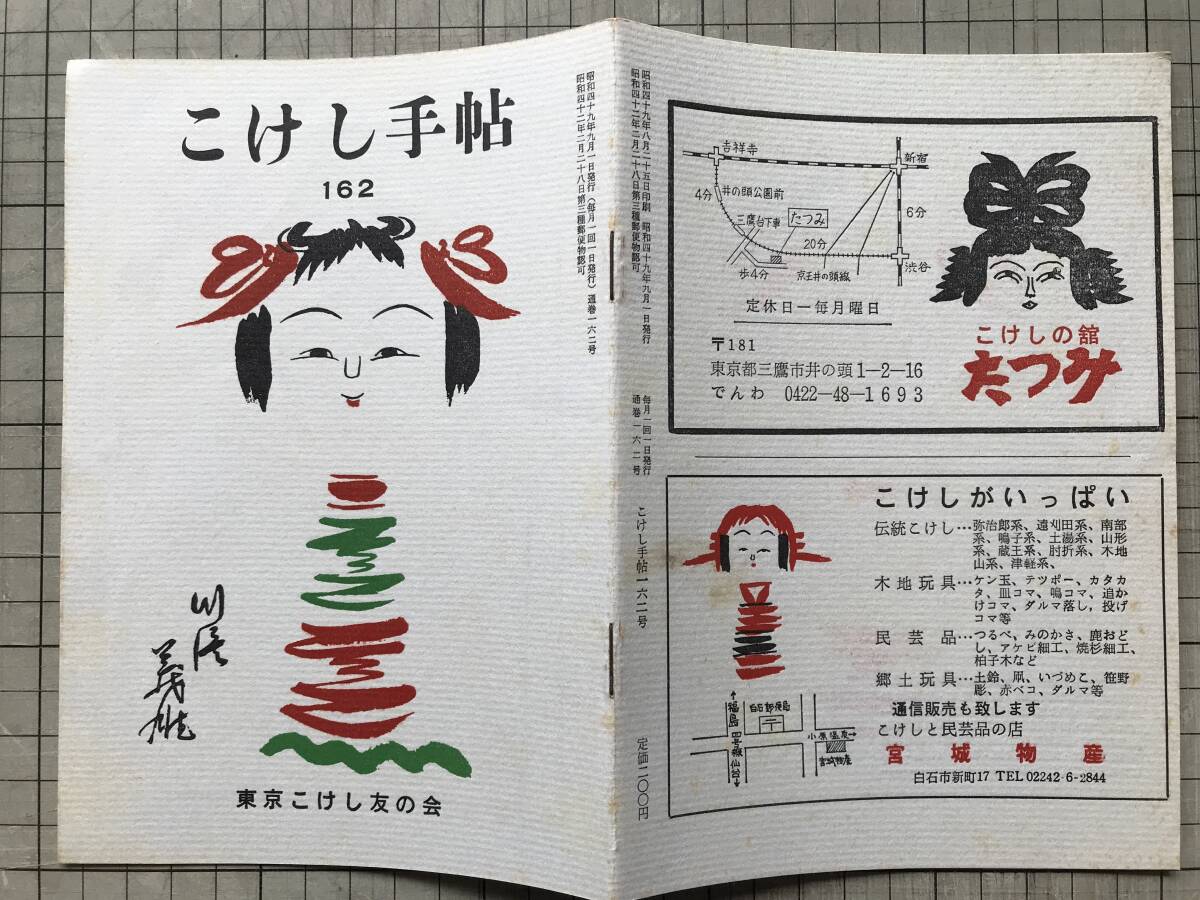 こけし手帖
162
東京こけし友の会
昭和四十九年九月一日発行(毎月一回一日発行)通巻一六二号
昭和四十二年二月二十八日第三種郵便物認可
昭和四十九年八月二十五日印刷 昭和四十九年九月一日発行
昭和四十二年二月二十八日第三種郵便物認可
毎月一回一日発行
通巻一六二号
こけし手帖一六二号
定価二〇〇円
吉祥寺
新宿
4分
井の頭公園前
三鷹台下車
たつみ
6分
20分
渋谷
歩4分
京王井の頭線
定休日ー毎月曜日
〒181
東京都三鷹市井の頭1-2-16
でんわ 0422-48-1693
こけしの舘
たつみ
こけしがいっぱい
伝統こけし…弥治郎系、遠刈田系、南部
系、鳴子系、土湯系、山形
系、蔵王系、肘折系、木地
山系、津軽系、
木地玩具…ケン玉、テツポー、カタカ
タ、皿コマ、鳴コマ、追か
けコマ、ダルマ落し、投げ
コマ等
民芸品…つるべ、みのかさ、鹿おど
し、アケビ細工、焼杉細工、
柏子木など
郷土玩具…土鈴、凧、いづめこ、笹野
彫、赤ベコ、ダルマ等
通信販売も致します
こけしと民芸品の店
宮城物産
白石市新町17 TEL 02242-6-2844
福島
四号線
仙台
白石郵便局
〒
小原温泉
宮城物産